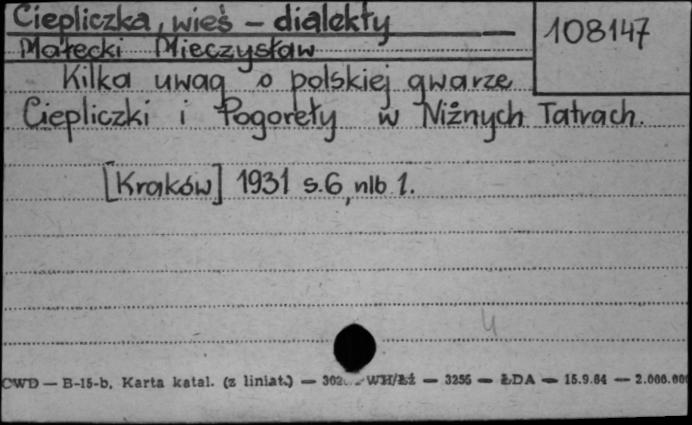 Ciepliczka, wieś – dialekty
108147
Małecki Mieczysław
Kilka uwag o polskiej gwarze
Ciepliczki i Pogoreły w Niżnych Tatrach.
[Kraków] 1931 s.6, nlb 1.
4
CWD — B-15-b, Karta katal. (z liniat.) — WH/Łż — 3256 — ŁDA — 15.9.64 — 2.000.000